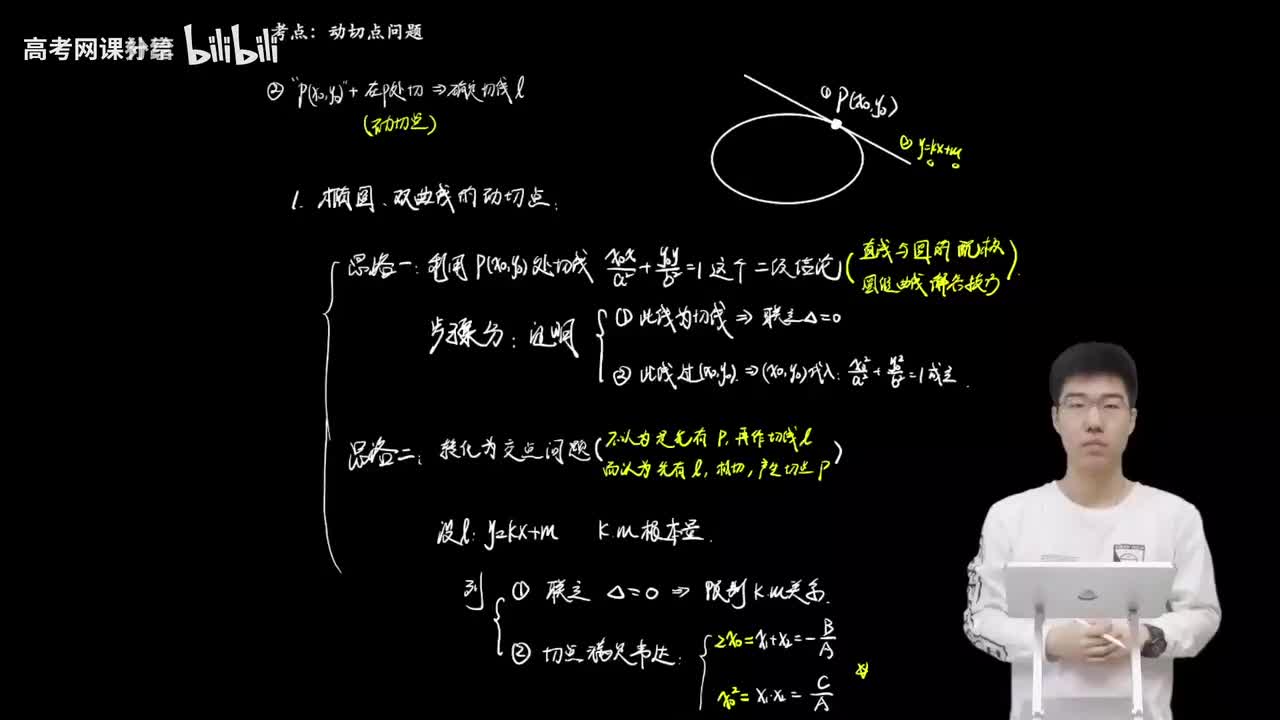 高考网课补给 bilibili
考点：动切点问题
② "P(x₀,y₀)"+ 在P处切 ⇒ 确定切线 l
(动切点)
① P(x₀,y₀)
② y=kx+m
1. 椭圆、双曲线的动切点：
思路一：利用 P(x₀,y₀) 处切线 x₀x/a²+y₀y/b²=1 这个二级结论(直线与圆的
圆锥曲线解答技巧)
步骤分：证明 { ① 此线为切线 ⇒ 联立 Δ=0
② 此线过(x₀,y₀). ⇒ (x₀,y₀)代入: x₀²/a²+y₀²/b²=1成立.
思路二：转化为交点问题(不认为是先有 P, 再作切线 l
而认为先有 l, 相切, 产生切点 P)
设 l: y=kx+m k.m 根本量.
列 { ① 联立 Δ=0 ⇒ 得到 k.m关系.
② 切点满足韦达: { 2x₀=x₁+x₂=-B/A
x₀²=x₁·x₂=C/A